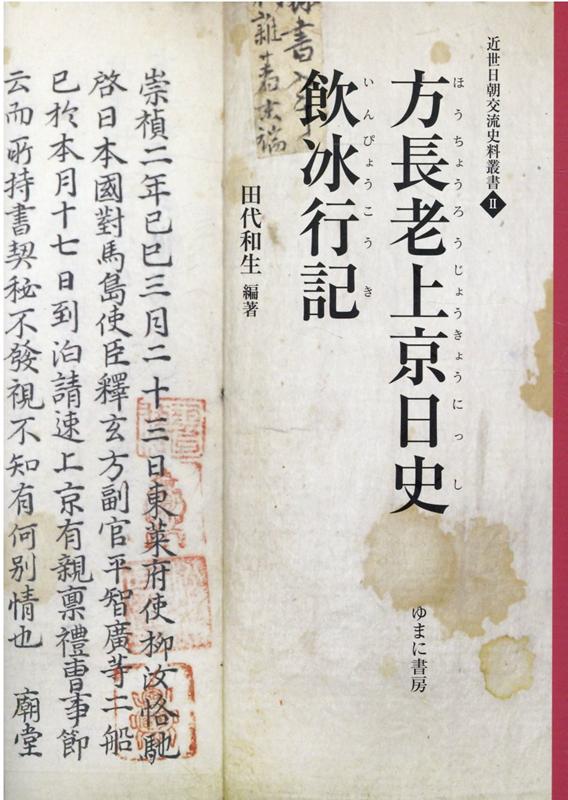 近世日朝交流史料叢書 Ⅱ
方長老上京日史
ほうちょうろうじょうきょうにっし
飲冰行記
いんぴょうこうき
田代和生 編著
ゆまに書房
崇禎二年己巳三月二十三日東萊府使柳汝恪馳
啓日本國對馬島使臣釋玄方副官平智廣等二船
已於本月十七日到泊請速上京有親稟禮曹事節
云而所持書契秘不發視不知有何別情也 廟堂